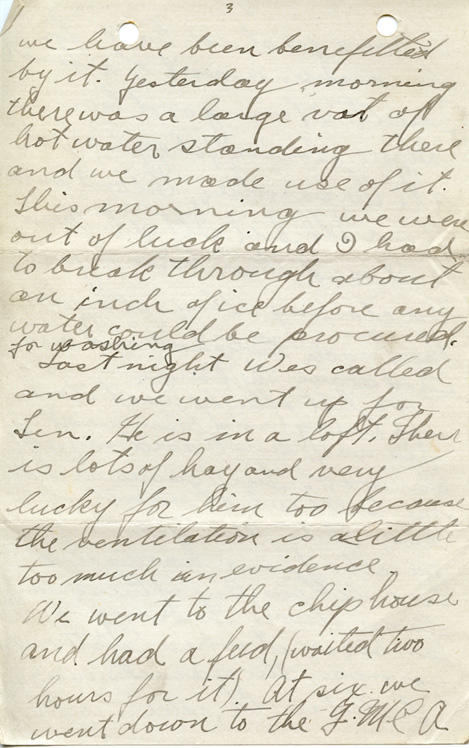 3
we have been benefitted
by it. Yesterday morning
there was a large vat of
hot water standing there
and we made use of it.
This morning we were
out of luck and I had
to break through about
an inch of ice before any
water could be procured.
for washing
Last night Wes called
and we went up for
Len. He is in a loft. There
is lots of hay and very
lucky for him too because
the ventilation is a little
too much in evidence.
We went to the chip house
and had a feed, (waited two
hours for it). At six we
went down to the Y.M.C.A